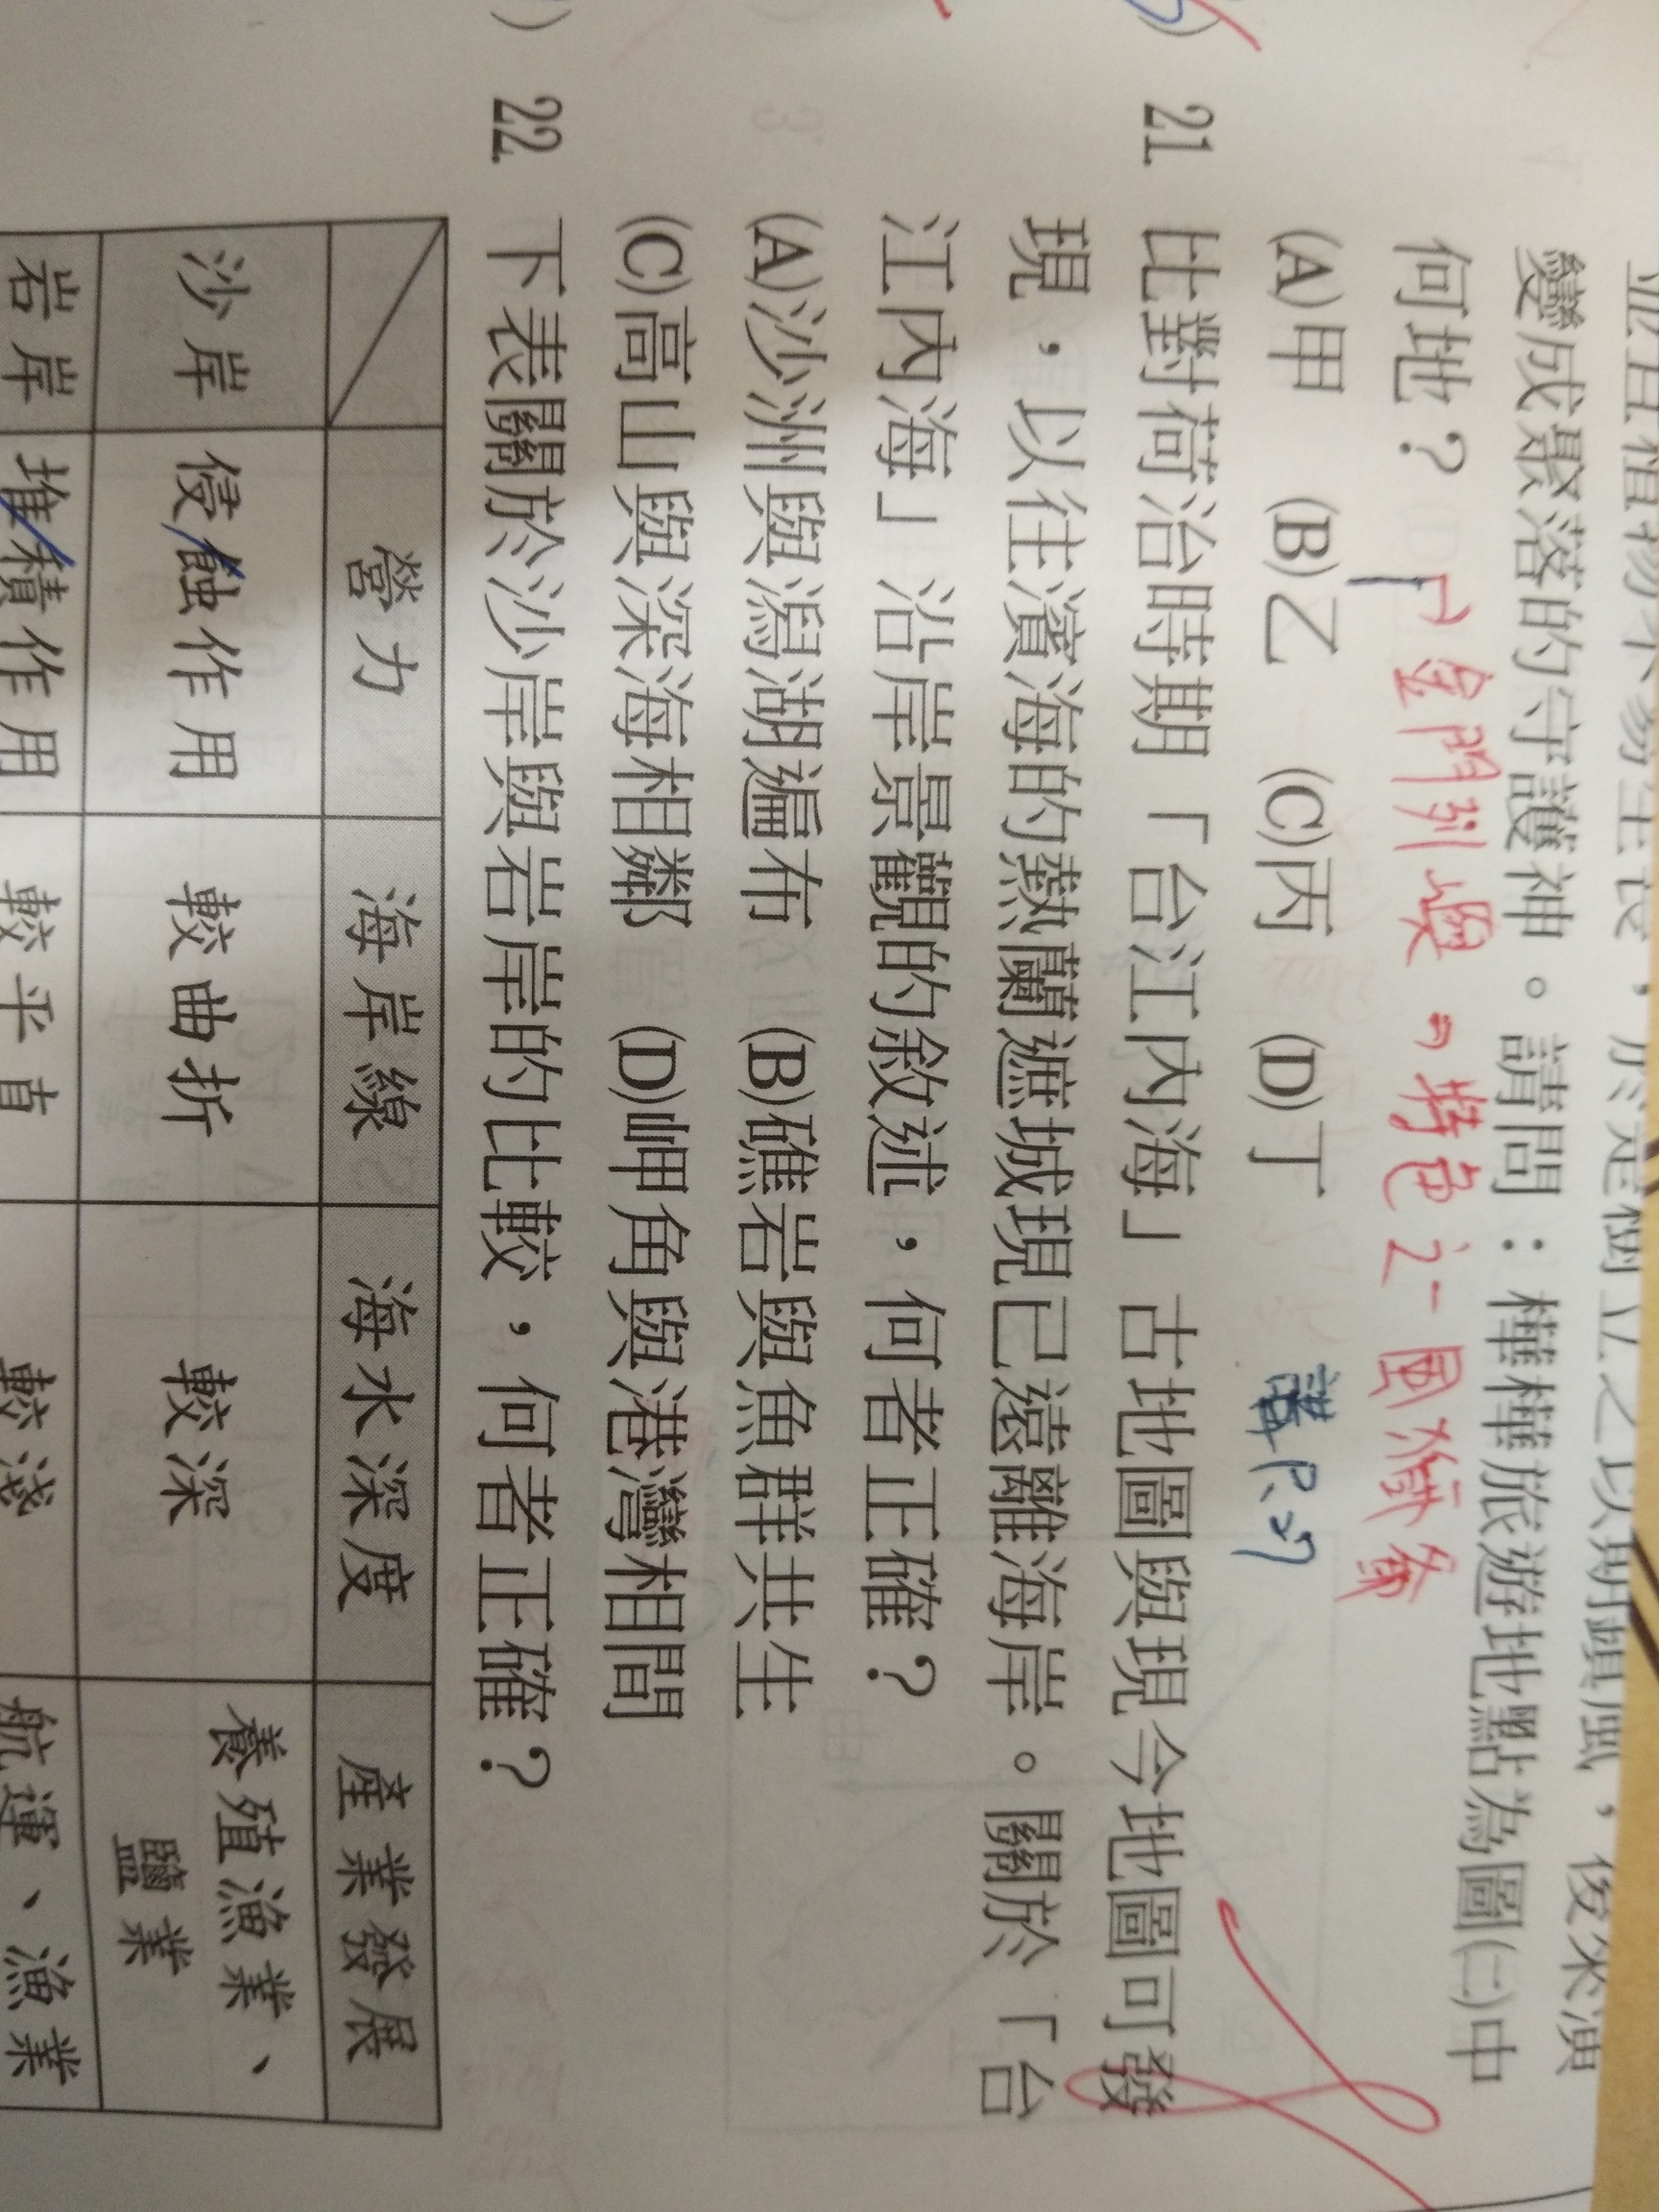 變成聚落的守護神。請問：樺樺旅遊地點為圖㈡中
何地？
金門列嶼，特色之一風獅爺
(A)甲 (B)乙 (C)丙 (D)丁
講P.27
21. 比對荷治時期「台江內海」古地圖與現今地圖可發
現，以往濱海的熱蘭遮城現已遠離海岸。關於「台
江內海」沿岸景觀的敘述，何者正確？
(A)沙洲與潟湖遍布 (B)礁岩與魚群共生
(C)高山與深海相鄰 (D)岬角與港灣相間
22. 下表關於沙岸與岩岸的比較，何者正確？
營力 海岸線 海水深度 產業發展
沙岸 侵蝕作用 較曲折 較深 養殖漁業、
鹽業
岩岸 堆積作用 較平直 較淺 航運、漁業